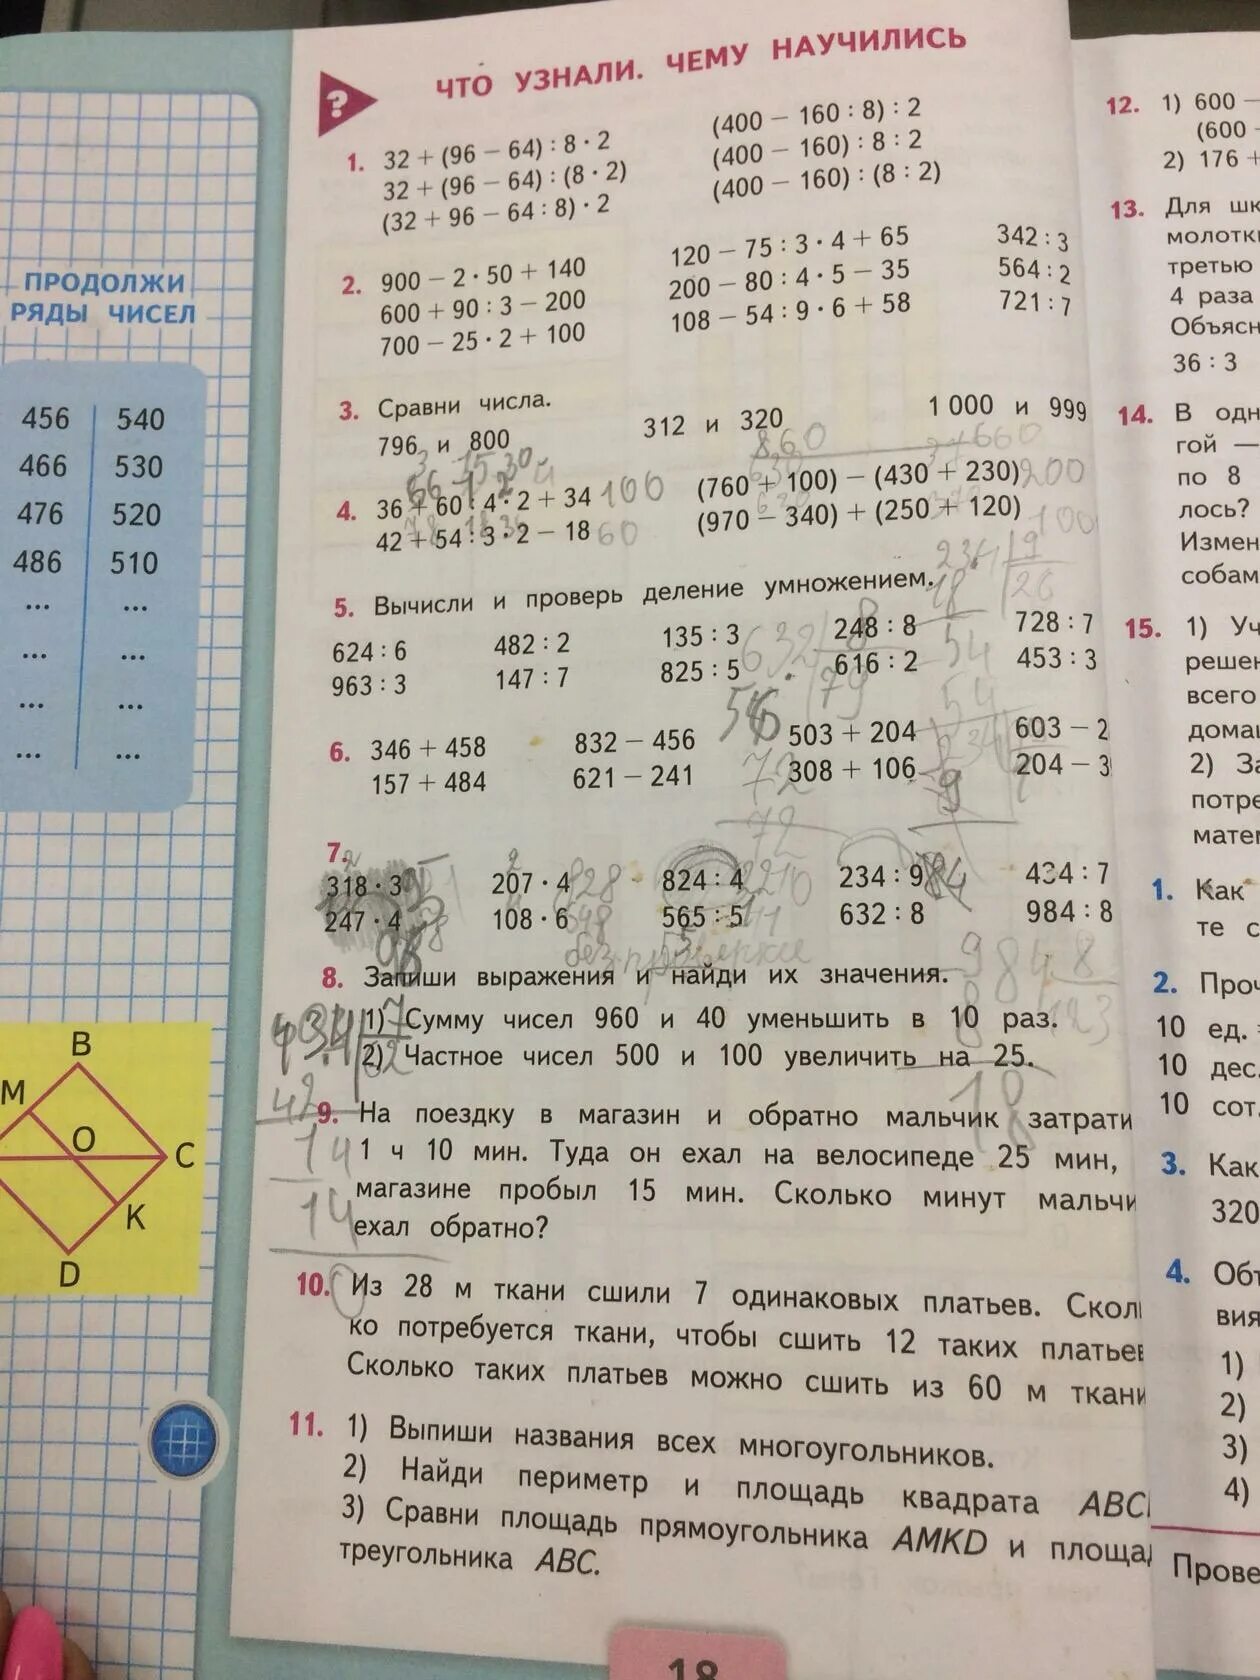 ЧТО УЗНАЛИ. ЧЕМУ НАУЧИЛИСЬ
?
ПРОДОЛЖИ
РЯДЫ ЧИСЕЛ
456 540
466 530
476 520
486 510
... ...
... ...
... ...
... ...
B
M
O
C
K
D
1. 32 + (96 − 64) : 8 · 2 (400 − 160 : 8) : 2
32 + (96 − 64) : (8 · 2) (400 − 160) : 8 : 2
(32 + 96 − 64 : 8) · 2 (400 − 160) : (8 : 2)
2. 900 − 2 · 50 + 140 120 − 75 : 3 · 4 + 65 342 : 3
600 + 90 : 3 − 200 200 − 80 : 4 · 5 − 35 564 : 2
700 − 25 · 2 + 100 108 − 54 : 9 · 6 + 58 721 : 7
3. Сравни числа.
796 и 800 312 и 320 1 000 и 999
860 660
4. 36 + 60 : 4 · 2 + 34 100 (760 + 100) − (430 + 230) 200
42 + 54 : 3 · 2 − 18 60 (970 − 340) + (250 + 120) 100
5. Вычисли и проверь деление умножением.
624 : 6 482 : 2 135 : 3 248 : 8 728 : 7
963 : 3 147 : 7 825 : 5 616 : 2 453 : 3
234 9
18 26
54
54
632 8
79
56
72
72
6. 346 + 458 832 − 456 503 + 204 603 − 2
157 + 484 621 − 241 308 + 106 204 − 3
7.
318 · 3 207 · 4 828 824 : 4 234 : 9 434 : 7
247 · 4 108 · 6 648 565 : 5 632 : 8 984 : 8
без проверки
984 8
8 123
18
8. Запиши выражения и найди их значения.
1) Сумму чисел 960 и 40 уменьшить в 10 раз.
2) Частное чисел 500 и 100 увеличить на 25.
434 7
42 62
14
14
9. На поездку в магазин и обратно мальчик затрати
1 ч 10 мин. Туда он ехал на велосипеде 25 мин,
магазине пробыл 15 мин. Сколько минут мальчи
ехал обратно?
10. Из 28 м ткани сшили 7 одинаковых платьев. Скол
ко потребуется ткани, чтобы сшить 12 таких платьев
Сколько таких платьев можно сшить из 60 м ткани
11. 1) Выпиши названия всех многоугольников.
2) Найди периметр и площадь квадрата ABC
3) Сравни площадь прямоугольника AMKD и площад
треугольника ABC.
18
12. 1) 600 −
(600 −
2) 176 +
13. Для шк
молотки
третью
4 раза
Объясн
36 : 3
14. В одн
гой —
по 8
лось?
Измен
собам
15. 1) Уч
решен
всего
домаш
2) За
потре
матем
1. Как
те с
2. Проч
10 ед. =
10 дес.
10 сот.
3. Как
320
4. Объ
вия
1)
2)
3)
4)
Прове